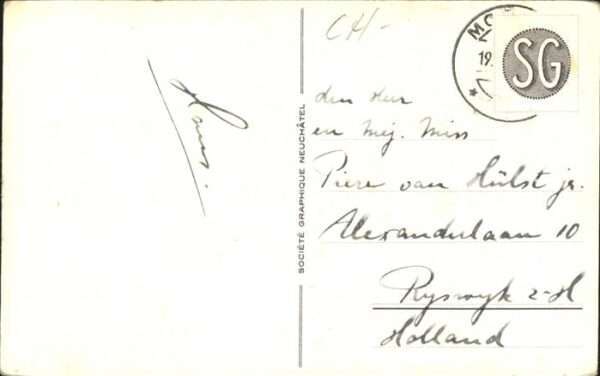 CH-
SG
19.
SOCIÉTÉ GRAPHIQUE NEUCHÂTEL
den Heer
en Mej. Miss
Piere van Hülst jr.
Alexanderlaan 10
Ryswyk Z-H
Holland